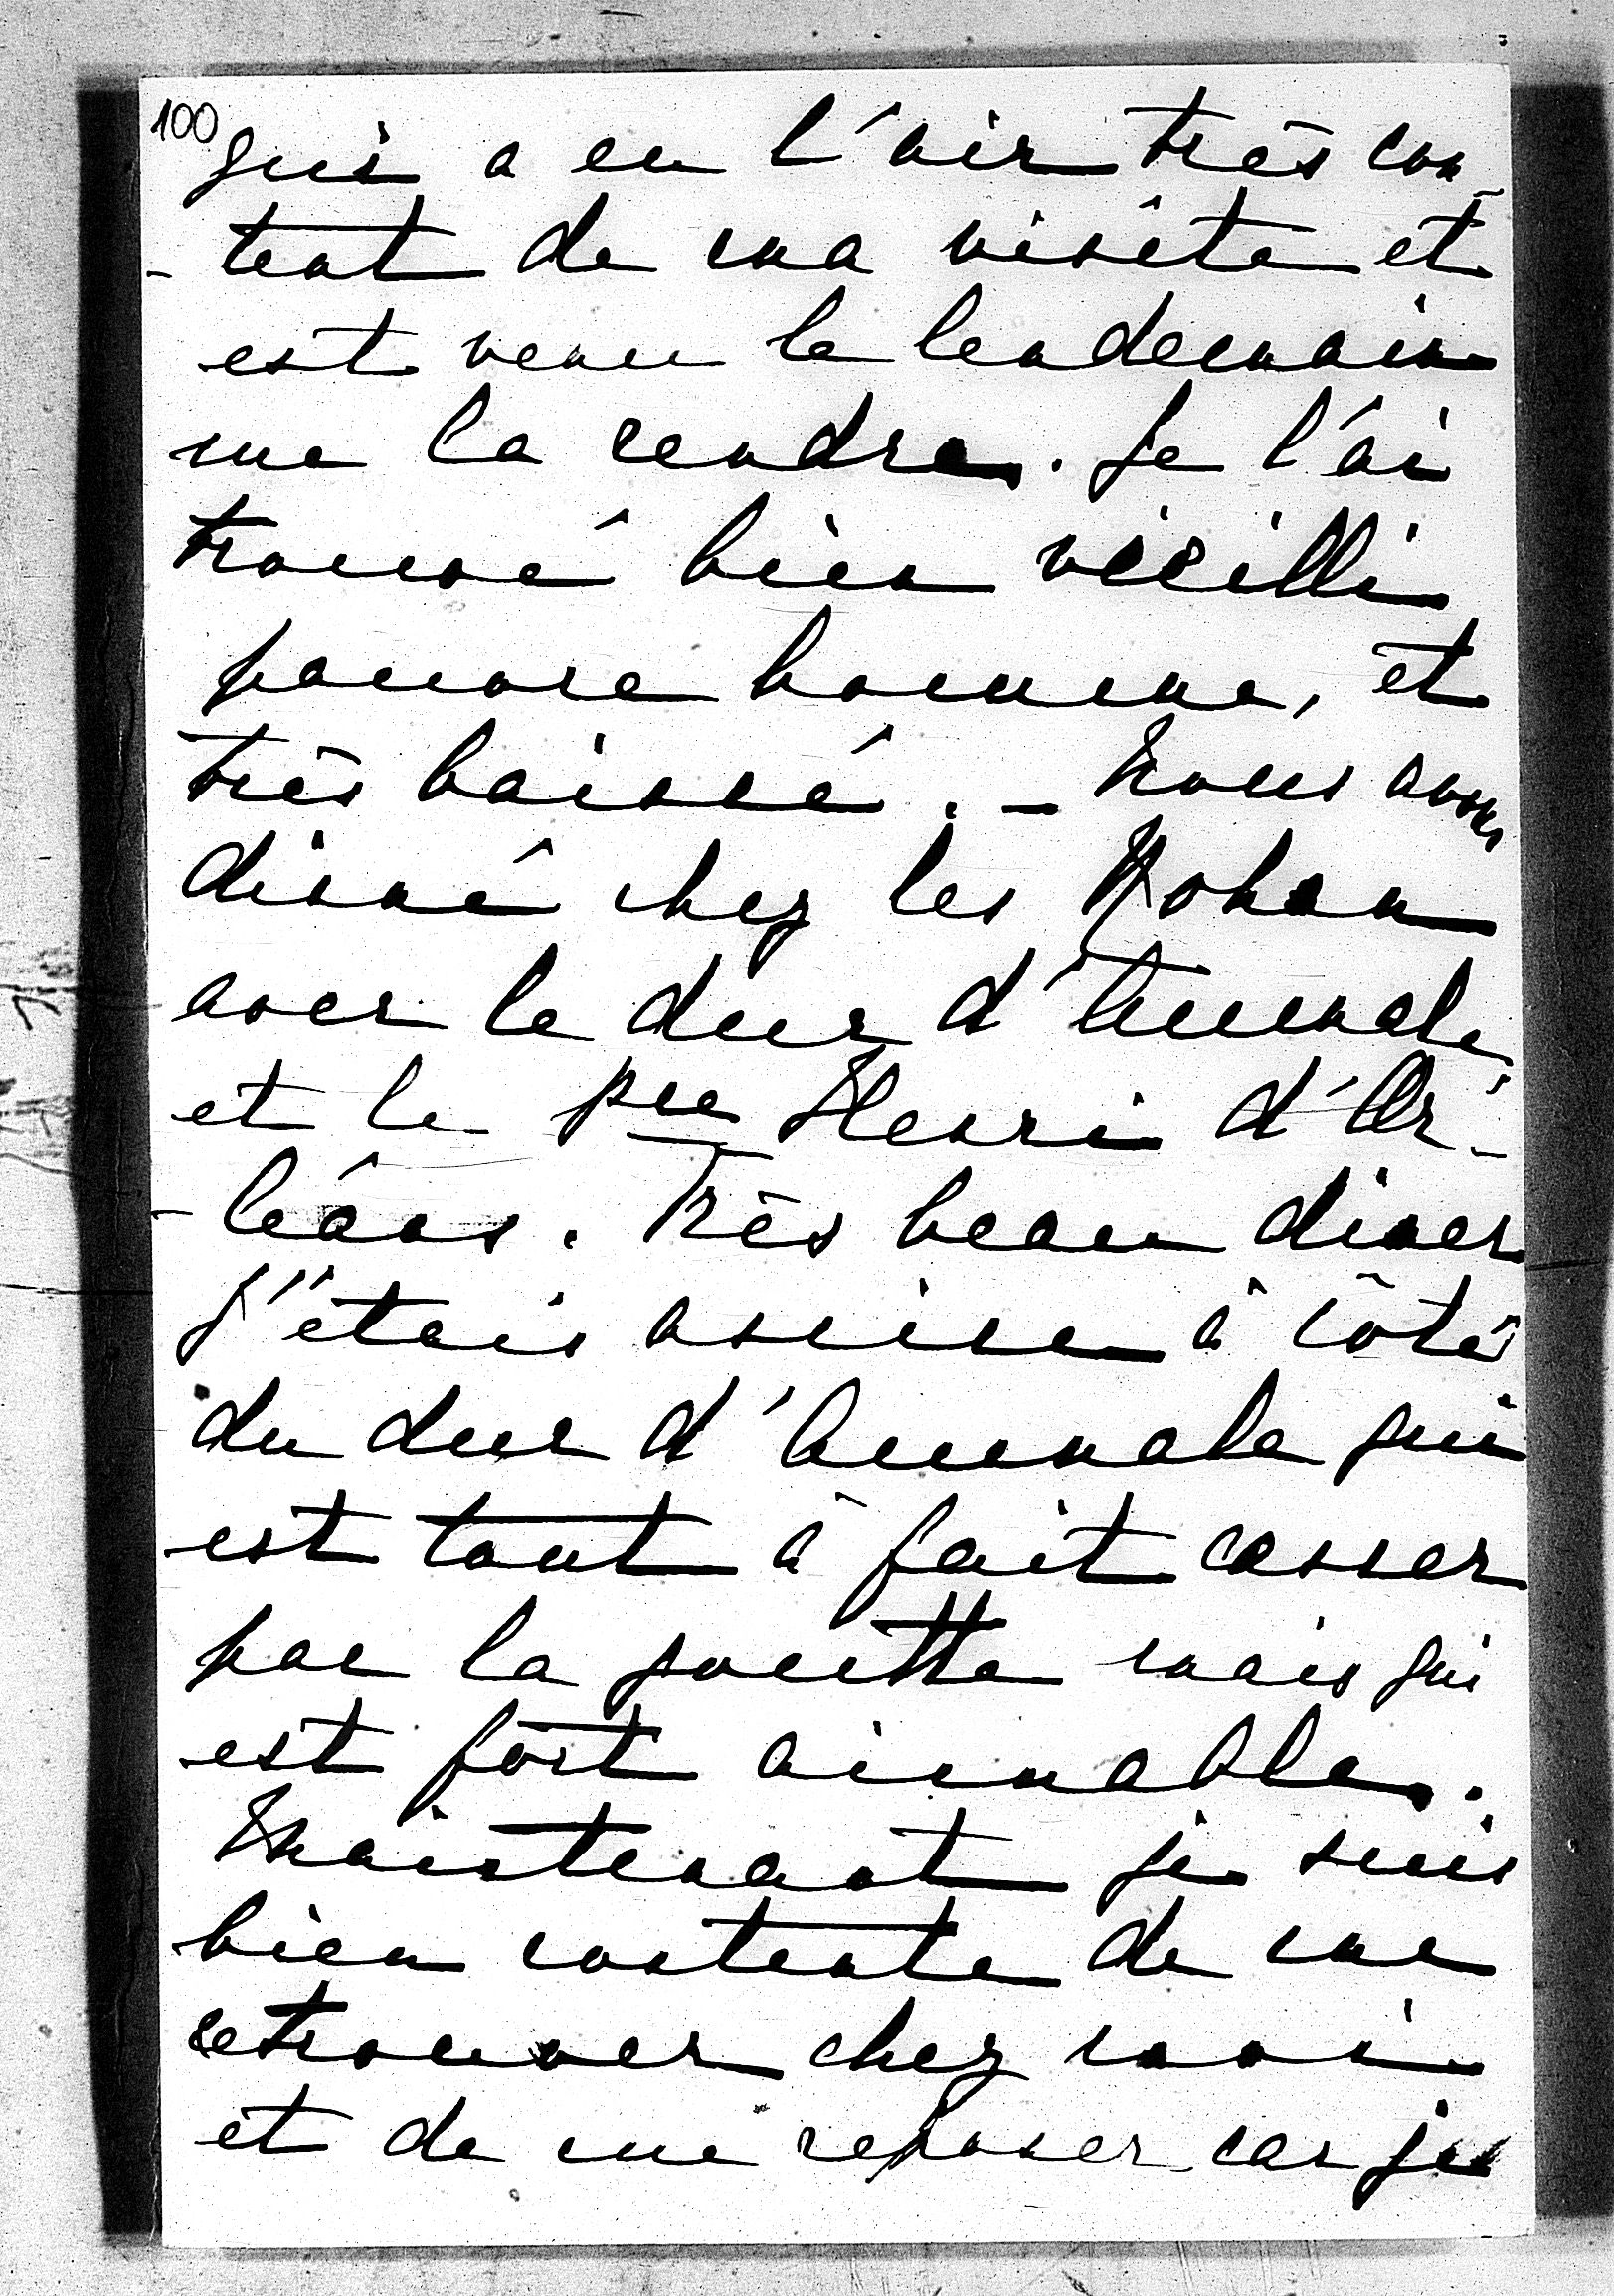 100
qui a eu l'air très con-
-tent de ma visite et
est venu le lendemain
me la rendre. Je l'ai
trouvé bien vieilli
pauvre homme, et
très baissé. — Nous avons
diné chez les Rohan
avec le duc d'Aumale
et le Pce Henri d'Or-
-léans. Très beau diner
j'étais assise à côté
du duc d'Aumale qui
est tout à fait casser
par la goutte mais qui
est fort aimable.
Maintenant je suis
bien contente de me
retrouver chez moi
et de me reposer car je